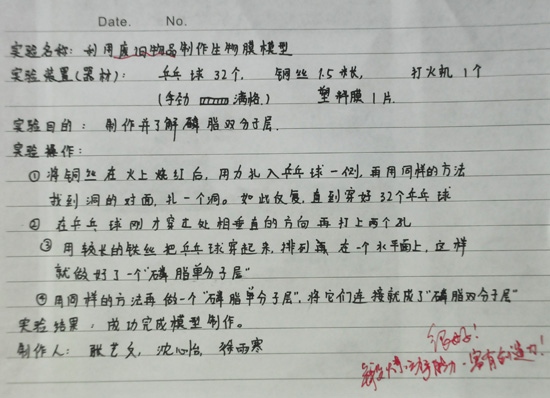 Date. No.
实验名称: 利用废旧物品制作生物膜模型
实验装置(器材): 乒乓球32个, 铜丝1.5米长, 打火机1个
(手动 满格.) 塑料膜1片.
实验目的: 制作并了解磷脂双分子层.
实验操作:
①将铜丝在火上烧红后, 用力扎入乒乓球一侧, 再用同样的方法
找到洞的对面, 扎一个洞。如此反复, 直到穿好32个乒乓球
②在乒乓球刚才穿过处相垂直的方向再打上两个孔
③用较长的铁丝把乒乓球穿起来, 排列在一个水平面上, 这样
就做好了一个"磷脂单分子层"
④用同样的方法再做一个"磷脂单分子层", 将它们连接就成了"磷脂双分子层"
实验结果: 成功完成模型制作。
制作人: 张艺文, 沈心怡, 徐雨寒
很好!
动手能力 富有创造力!